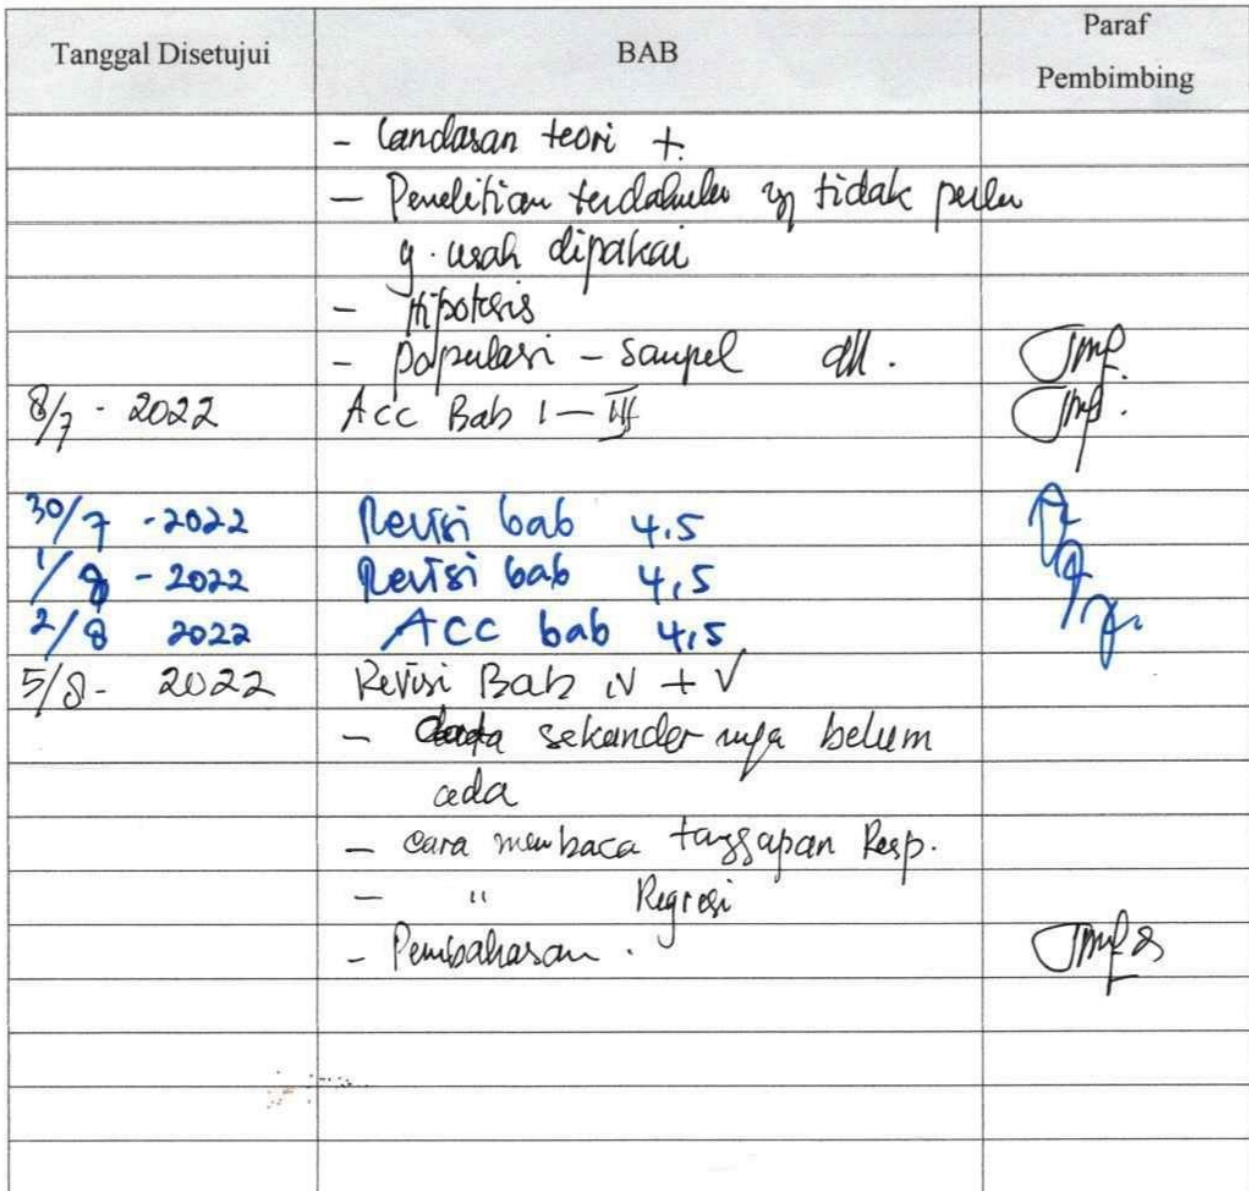 Tanggal Disetujui BAB Paraf Pembimbing
- Landasan teori +.
- Penelitian terdahulu yg tidak perlu
g. usah dipakai
- Hipotesis
- Populasi - Sampel dll.
8/7 - 2022 Acc Bab I - III
30/7 - 2022 Revisi bab 4,5
1/8 - 2022 Revisi bab 4,5
2/8 2022 ACC bab 4,5
5/8 - 2022 Revisi Bab IV + V
- data sekunder nya belum
ada
- cara membaca tanggapan Resp.
- " Regresi
- Pembahasan .